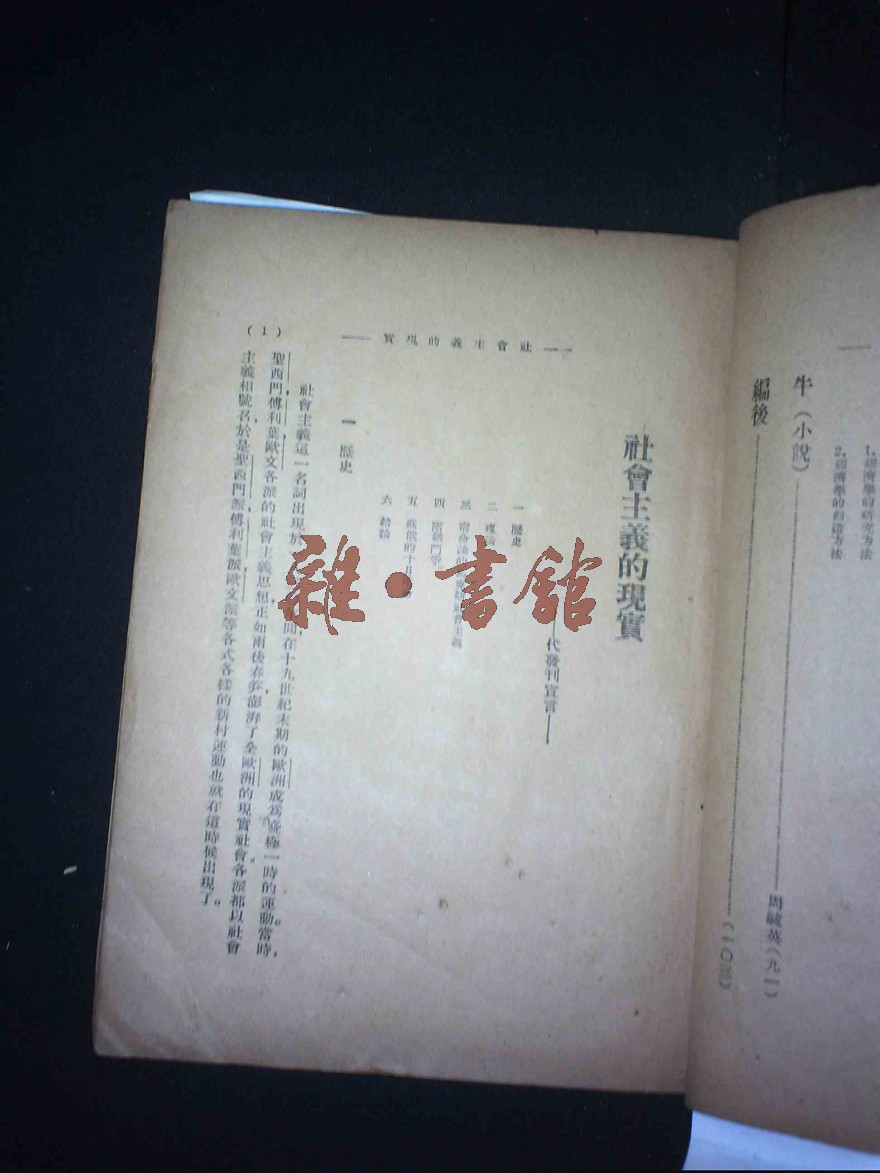 1.經濟學的研究方法
2.經濟學的創造方法
牛(小說)周緘英(九一)
編後(一〇三)
社會主義的現實
代發刊宣言
一 歷史
二 理論
三
社會主義
四 階級鬥爭
五 蘇俄的十月
六 結論
社會主義的現實
一 歷史
社會主義這一名詞出現於
間在十九世紀末期的歐洲成爲盛極一時的運動。當時,
聖西門,傅利葉,歐文各派的社會主義思想正如雨後春筍,澎湃了全歐洲的現實社會。各派都以社會
主義相號召,於是聖西門派,傅利葉派,歐文派等各式各樣的新村運動也就在這時候出現了。
(1)
雜·書館